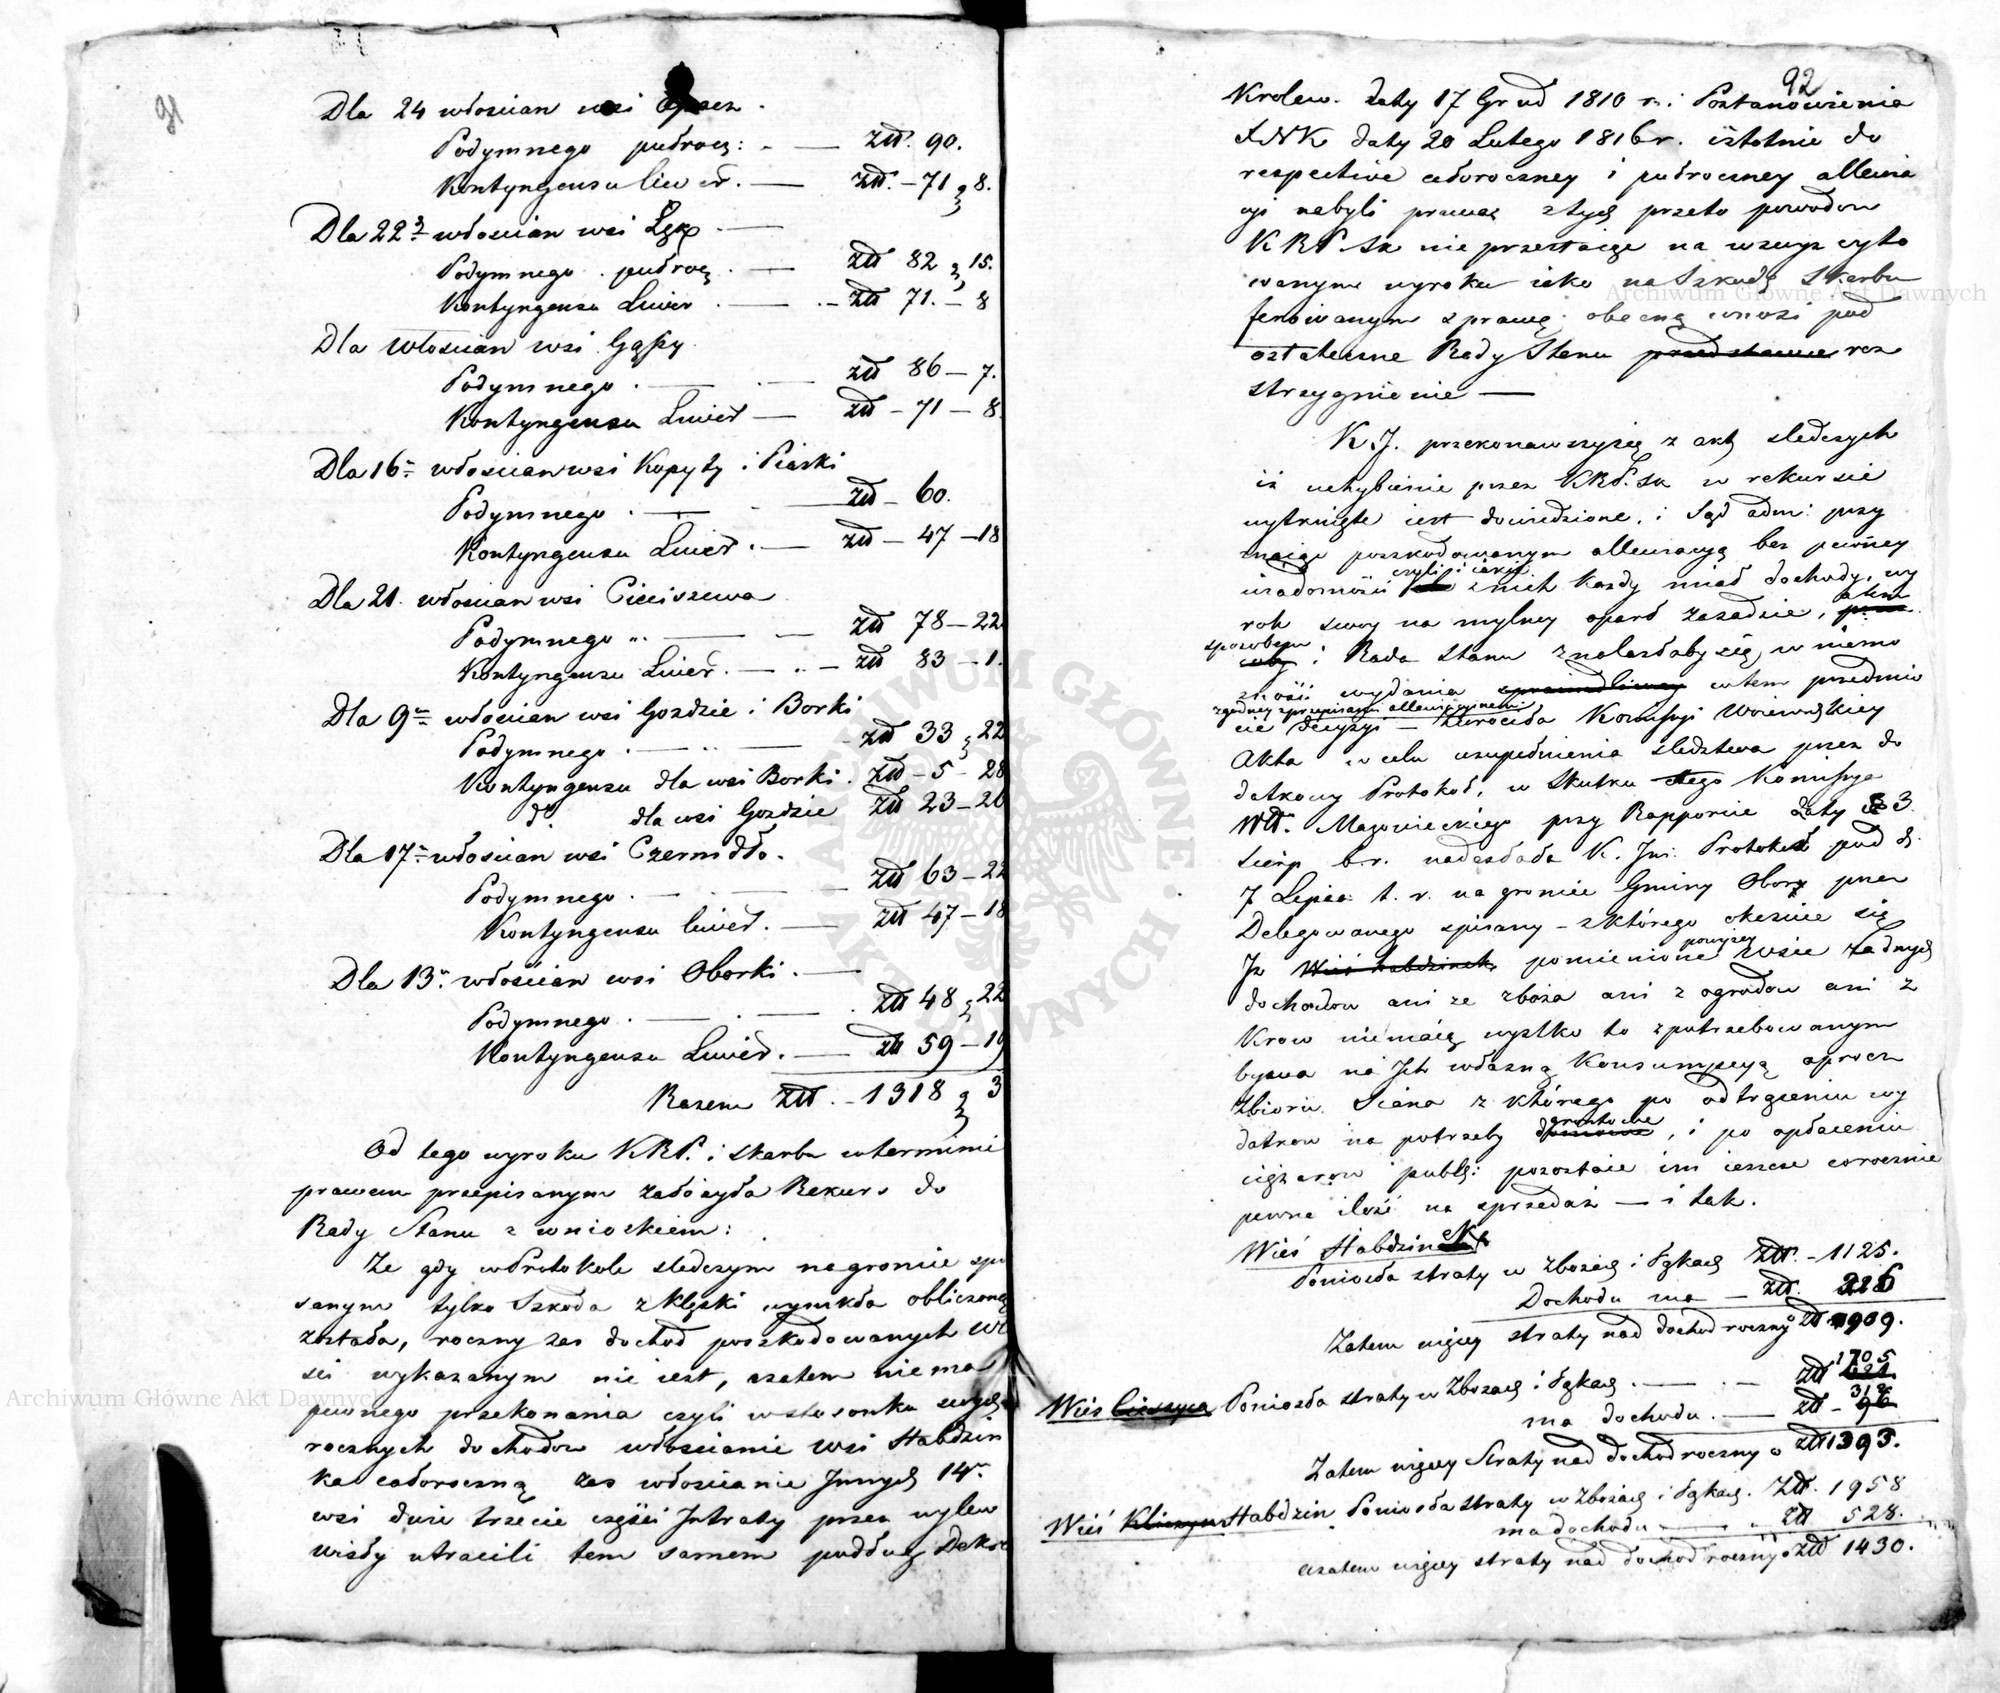 91
Dla 24 włoscian wsi
Podymnego pułrocz: — złł. 90.
Kontyngensu liwer. — złł. — 71 „ 8.
Dla 22 włoscian wsi Łęg —
Podymnego pułrocz. — złł 82 „ 15.
Kontyngensu Liwer — złł 71. — 8
Dla włoscian wsi Gąssy
Podymnego . — złł 86 — 7.
Kontyngensu Liwer — złł — 71 — 8.
Dla 16 włoscian wsi Kopyty i Piaski
Podymnego . — złł — 60.
Kontyngensu Liwer . — złł — 47 — 18
Dla 21. włoscian wsi Cieciszewa
Podymnego — złł 78 — 22
Kontyngensu Liwer. — złł 83 — 1.
Dla 9 włoscian wsi Gozdzie i Borki
Podymnego . — złł 33 „ 22
Kontyngensu dla wsi Borki . złł — 5 — 28
do. dla wsi Gozdzie złł 23 — 20
Dla 17 włoscian wsi Czernidło.
Podymnego . — złł 63 — 22
Kontyngensu liwer. — złł 47 — 18
Dla 13 włoscian wsi Oborki . —
Podymnego . — złł 48 „ 22
Kontyngensu Liwer. — złł 59 — 19
Razem złł. — 1318 „ 3
Od tego wyroku KRP. i skarbu w terminie
prawem przepisanym założyła Rekurs do
Rady Stanu z wnioskiem:
Ze gdy w Protokole sledczym na groncie spi
sanym tylko Szkoda z klęski wynikła obliczoną
została, roczny zas dochod poszkodowanych Wł
sci wykazanym nie iest, azatem niema
pewnego przekonania czyli w stosonku swych
rocznych dochodow włoscianie wsi Habdzin
ka całoroczną zas włoscianie Innych 14
wsi dwie trzecie części Intraty przez wylew
wisły utracili tem samem podług Dekre
92
Krolew. daty 17 Grud 1810 r. i Postanowienia
XNK daty 20 Lutego 1816 r. istotnie do
respective całoroczney i pułroczney allewia
cyi nabyli prawa z tych przeto powodow
KRP Sk nie przestaiąc na wzwyż cyto
wanym wyroku iako na Szkodę Skarbu
ferowanym sprawę obecną wnosi pod
ostateczne Rady Stanu przedstawia roz
strzygnienie —
K. J. przekonawszy się z akt sledczych
iż uchybienie przez KRP. Sk w rekursie
wytknięte iest dowiedzione, i Sąd adm: przy
znaiąc poszkodowanym allewiacyą bez pewney
czyli i iakie
wiadomości z nich każdy miał dochody, wy
rok swoy na mylney oparł zasadzie, a tem
sposobem
i Rada Stanu znalazłaby się w niemo
żność wydania sprawiedliwey w tem przedmio
zgodney z przepisami allewiacyinemi
cie decyzyi — zwrociła Komissyi Woiewodzkiey
Akta w celu uzupełnienia sledztwa przez do
datkowy Protokoł, w skutku tego Komissya
Wdz. Mazowieckiego przy Rapporcie daty 3
Sierp b.r. nadesłała K. Jns: Protokoł pod d.
7 Lipca t. r. na groncie Gminy Obory przez
Delegowanego spisany — z którego okazuie się
powyżey
Iż Wieś Habdzinek pomienione wsie żadnych
dochodow ani ze zboża ani z ogrodow ani z
Krow niemaią wszystko to zpotrzebowanym
bywa na Ich własną Konsumpcyą oprocz
Zbioru Siana z którego po odtrąceniu wy
gruntowe
datkow na potrzeby domowe, i po opłaceniu
ciężarow publ: pozostaie im ieszcze corocznie
pewna ilość na sprzedaż — i tak.
Wieś Habdzinek
Poniosła straty w zbożach i łąkach złł. — 1125.
Dochodu ma — złł. 216
Zatem więcey straty nad dochod roczny złł 909.
1705
Wieś Cieszyca Poniosła straty w zbożach i łąkach . — złł
312
ma dochodu . — złł — 96
Zatem więcey Straty nad dochod roczny o złł 1393.
Wieś Kliczyn Habdzin Poniosła straty w zbożach i łąkach. złł. 1958
ma dochodu — złł 528.
azatem więcey straty nad dochod roczny o złł 1430.
Archiwum Główne Akt Dawnych
Archiwum Główne Akt Dawnych
ARCHIWUM GŁÓWNE AKT DAWNYCH